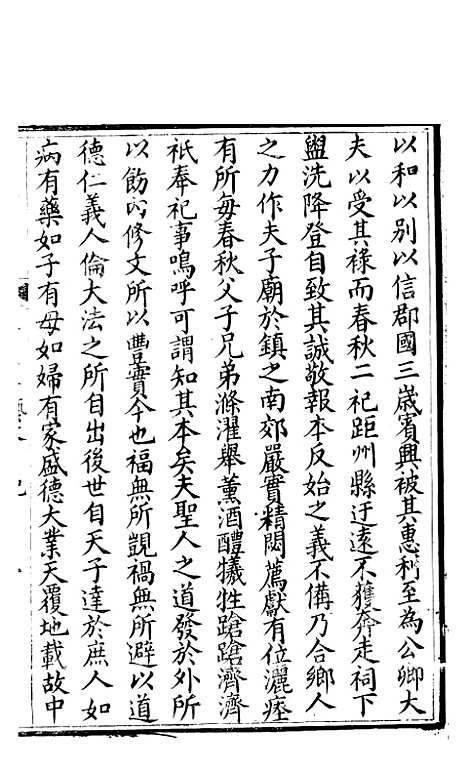 以和以别以信郡國三歲賓興被其惠利至為公卿大
夫以受其祿而春秋二祀距州縣迂遠不獲奔走祠下
盥洗降登自致其誠敬報本反始之義不備乃合鄉人
之力作夫子廟於鎮之南郊嚴實精閟薦獻有位灑瘞
有所每春秋父子兄弟滌濯舉薰酒醴犧牲蹌蹌濟濟
祇奉祀事嗚呼可謂知其本矣夫聖人之道發於外所
以飭內修文所以豊實今也福無所覬禍無所避以道
德仁義人倫大法之所自出後世自天子達於庶人如
病有藥如子有母如婦有家盛德大業天覆地載故中